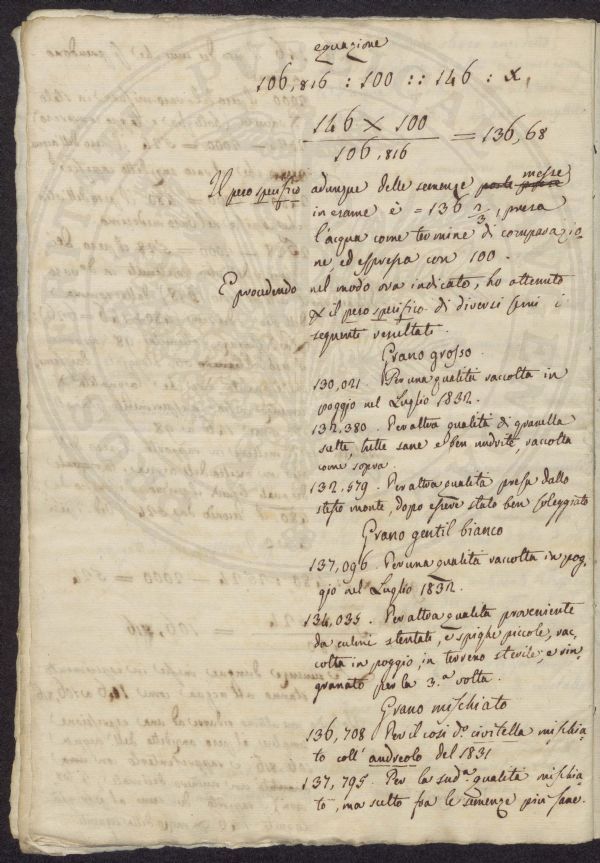 equazione
106,816 : 100 :: 146 : x,
146 × 100
106,816
= 136,68
Il peso specifico adunque delle semenze messe
in esame è = 136 2/3, presa
l'acqua come termine di comparazio-
ne, ed espressa con 100.
E procedendo nel modo ora indicato, ho ottenuto
il peso specifico di diversi grani i
seguenti resultati.
Grano grosso.
130,021. Per una qualità raccolta in
poggio nel Luglio 1832.
132,380. Per altra qualità di granella
scelte, tutte sane e ben nudrite, raccolta
come sopra.
132,579. Per altra qualità presa dallo
stesso monte, dopo essere stato ben soleggiato
Grano gentil bianco
137,096. Per una qualità raccolta in pog-
gio nel Luglio 1832.
134,035. Per altra qualità proveniente
da culmi stentati, e spighe piccole, rac-
colta in poggio, in terreno sterile, e rin-
granato per la 3.a volta.
Grano mischiato
136,708 Per il così d.o civitella mischia-
to coll' andreolo del 1831
137,795. Per la sud.a qualità mischia-
to, ma scelto fra le semenze più sane.